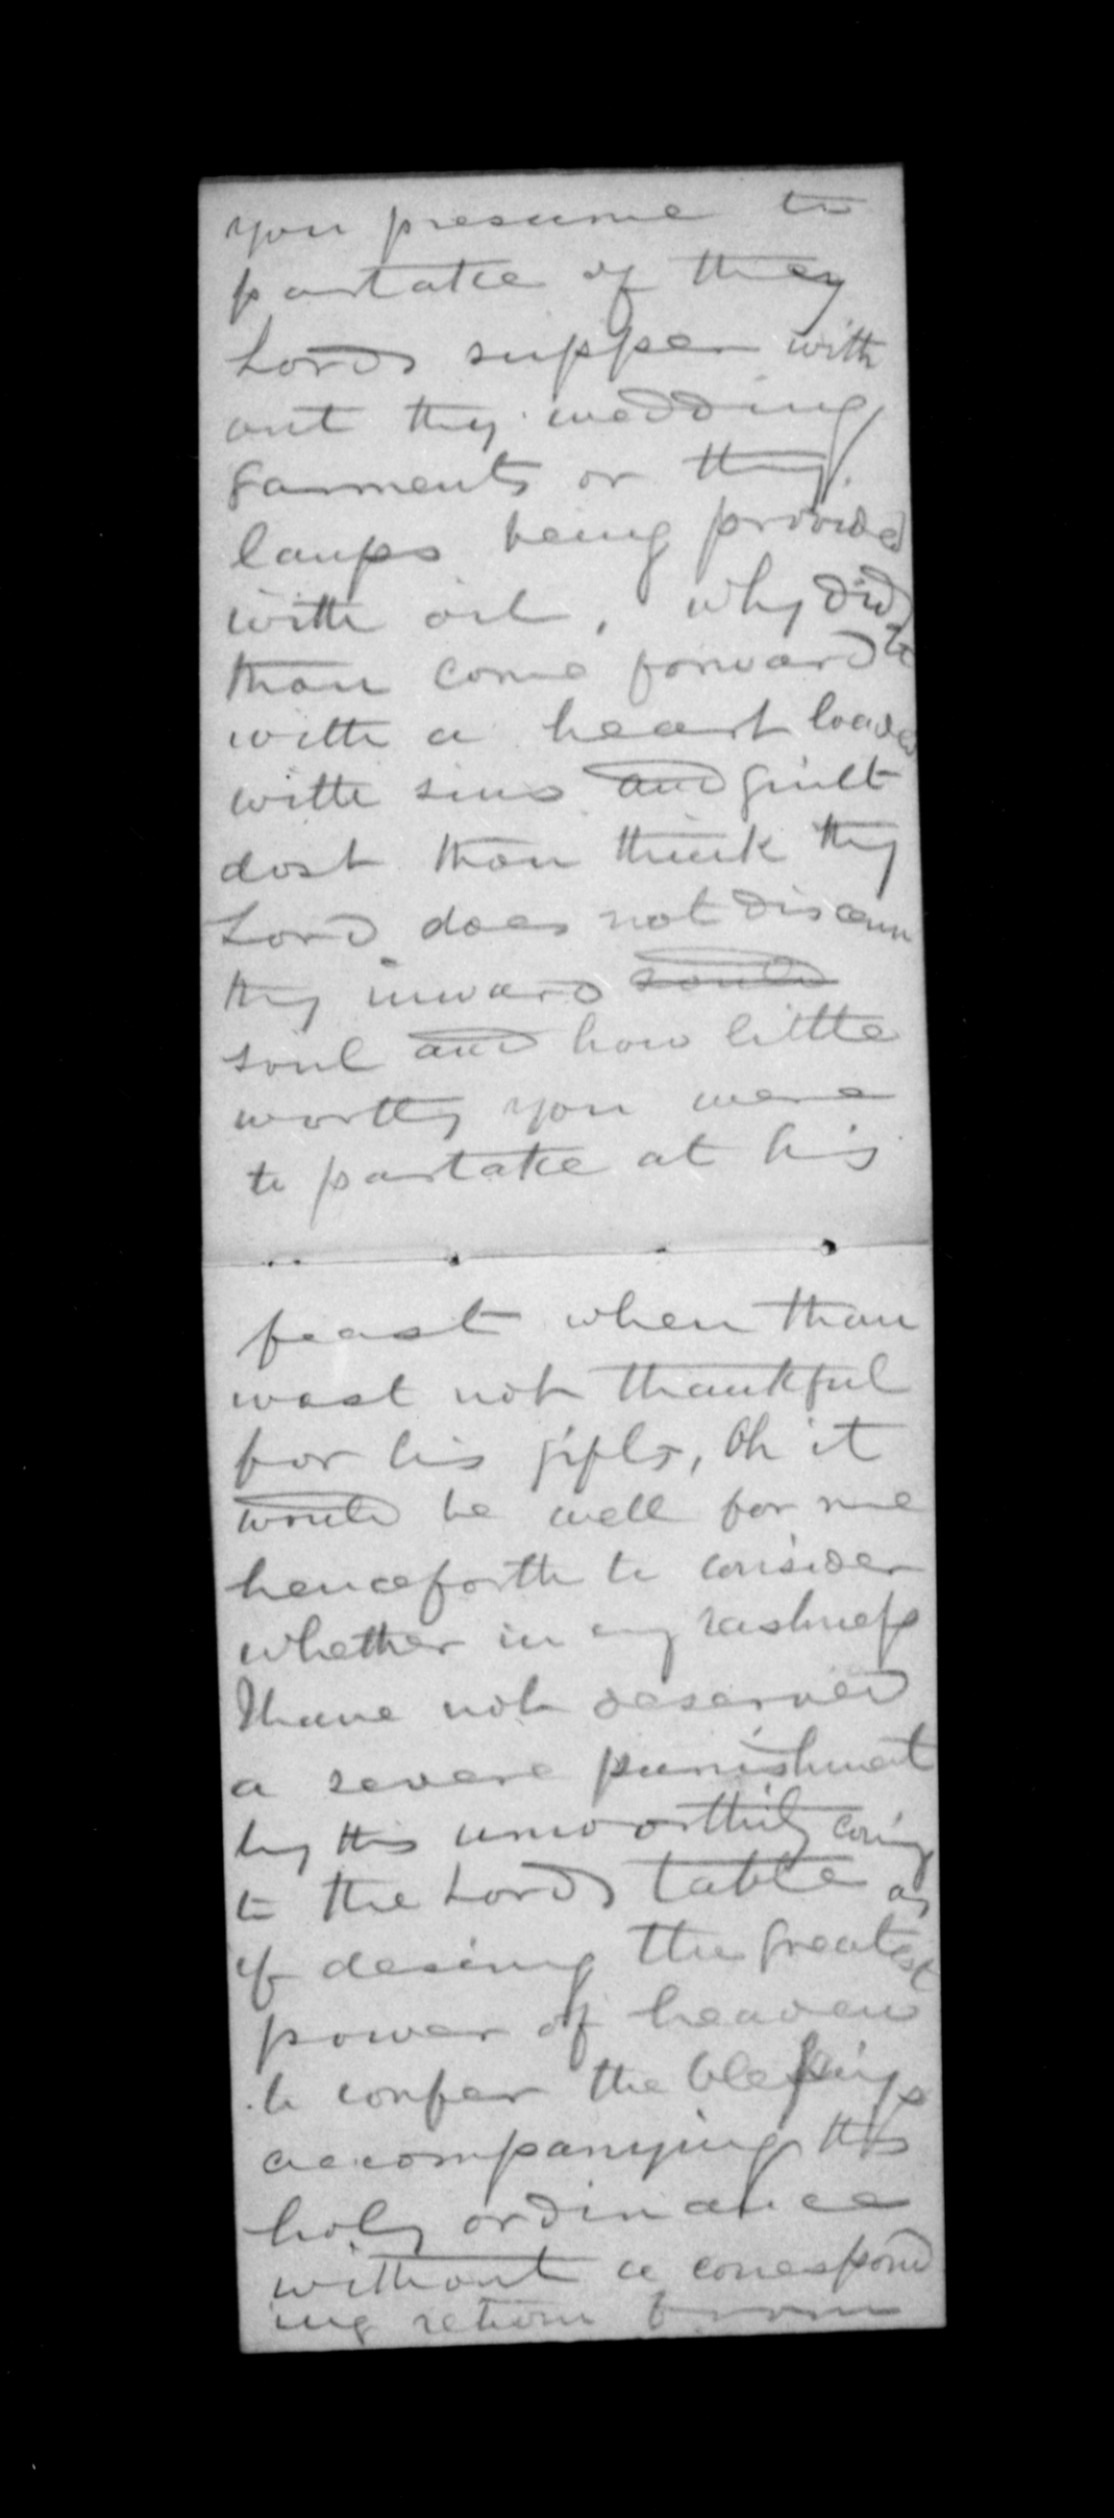 you presume to
partake of they
Lords supper with
out thy wedding
Garments or thy
lamps being provided
with oil, why did
thou come forward to
with a heart loaded
with sins and guilt
dost thou think thy
Lord does not discern
thy inward
soul and how little
worthy you were
to partake at his
feast when thou
wast not thankful
for his gifts, Oh it
would be well for me
henceforth to consider
whether in my rashness
I have not deserved
a severe punishment
by this unworthily coming
to the Lords table as
if desiring the greatest
power of heaven
to confer the blessings
accompanying this
holy ordinance
without a correspond
ing return from